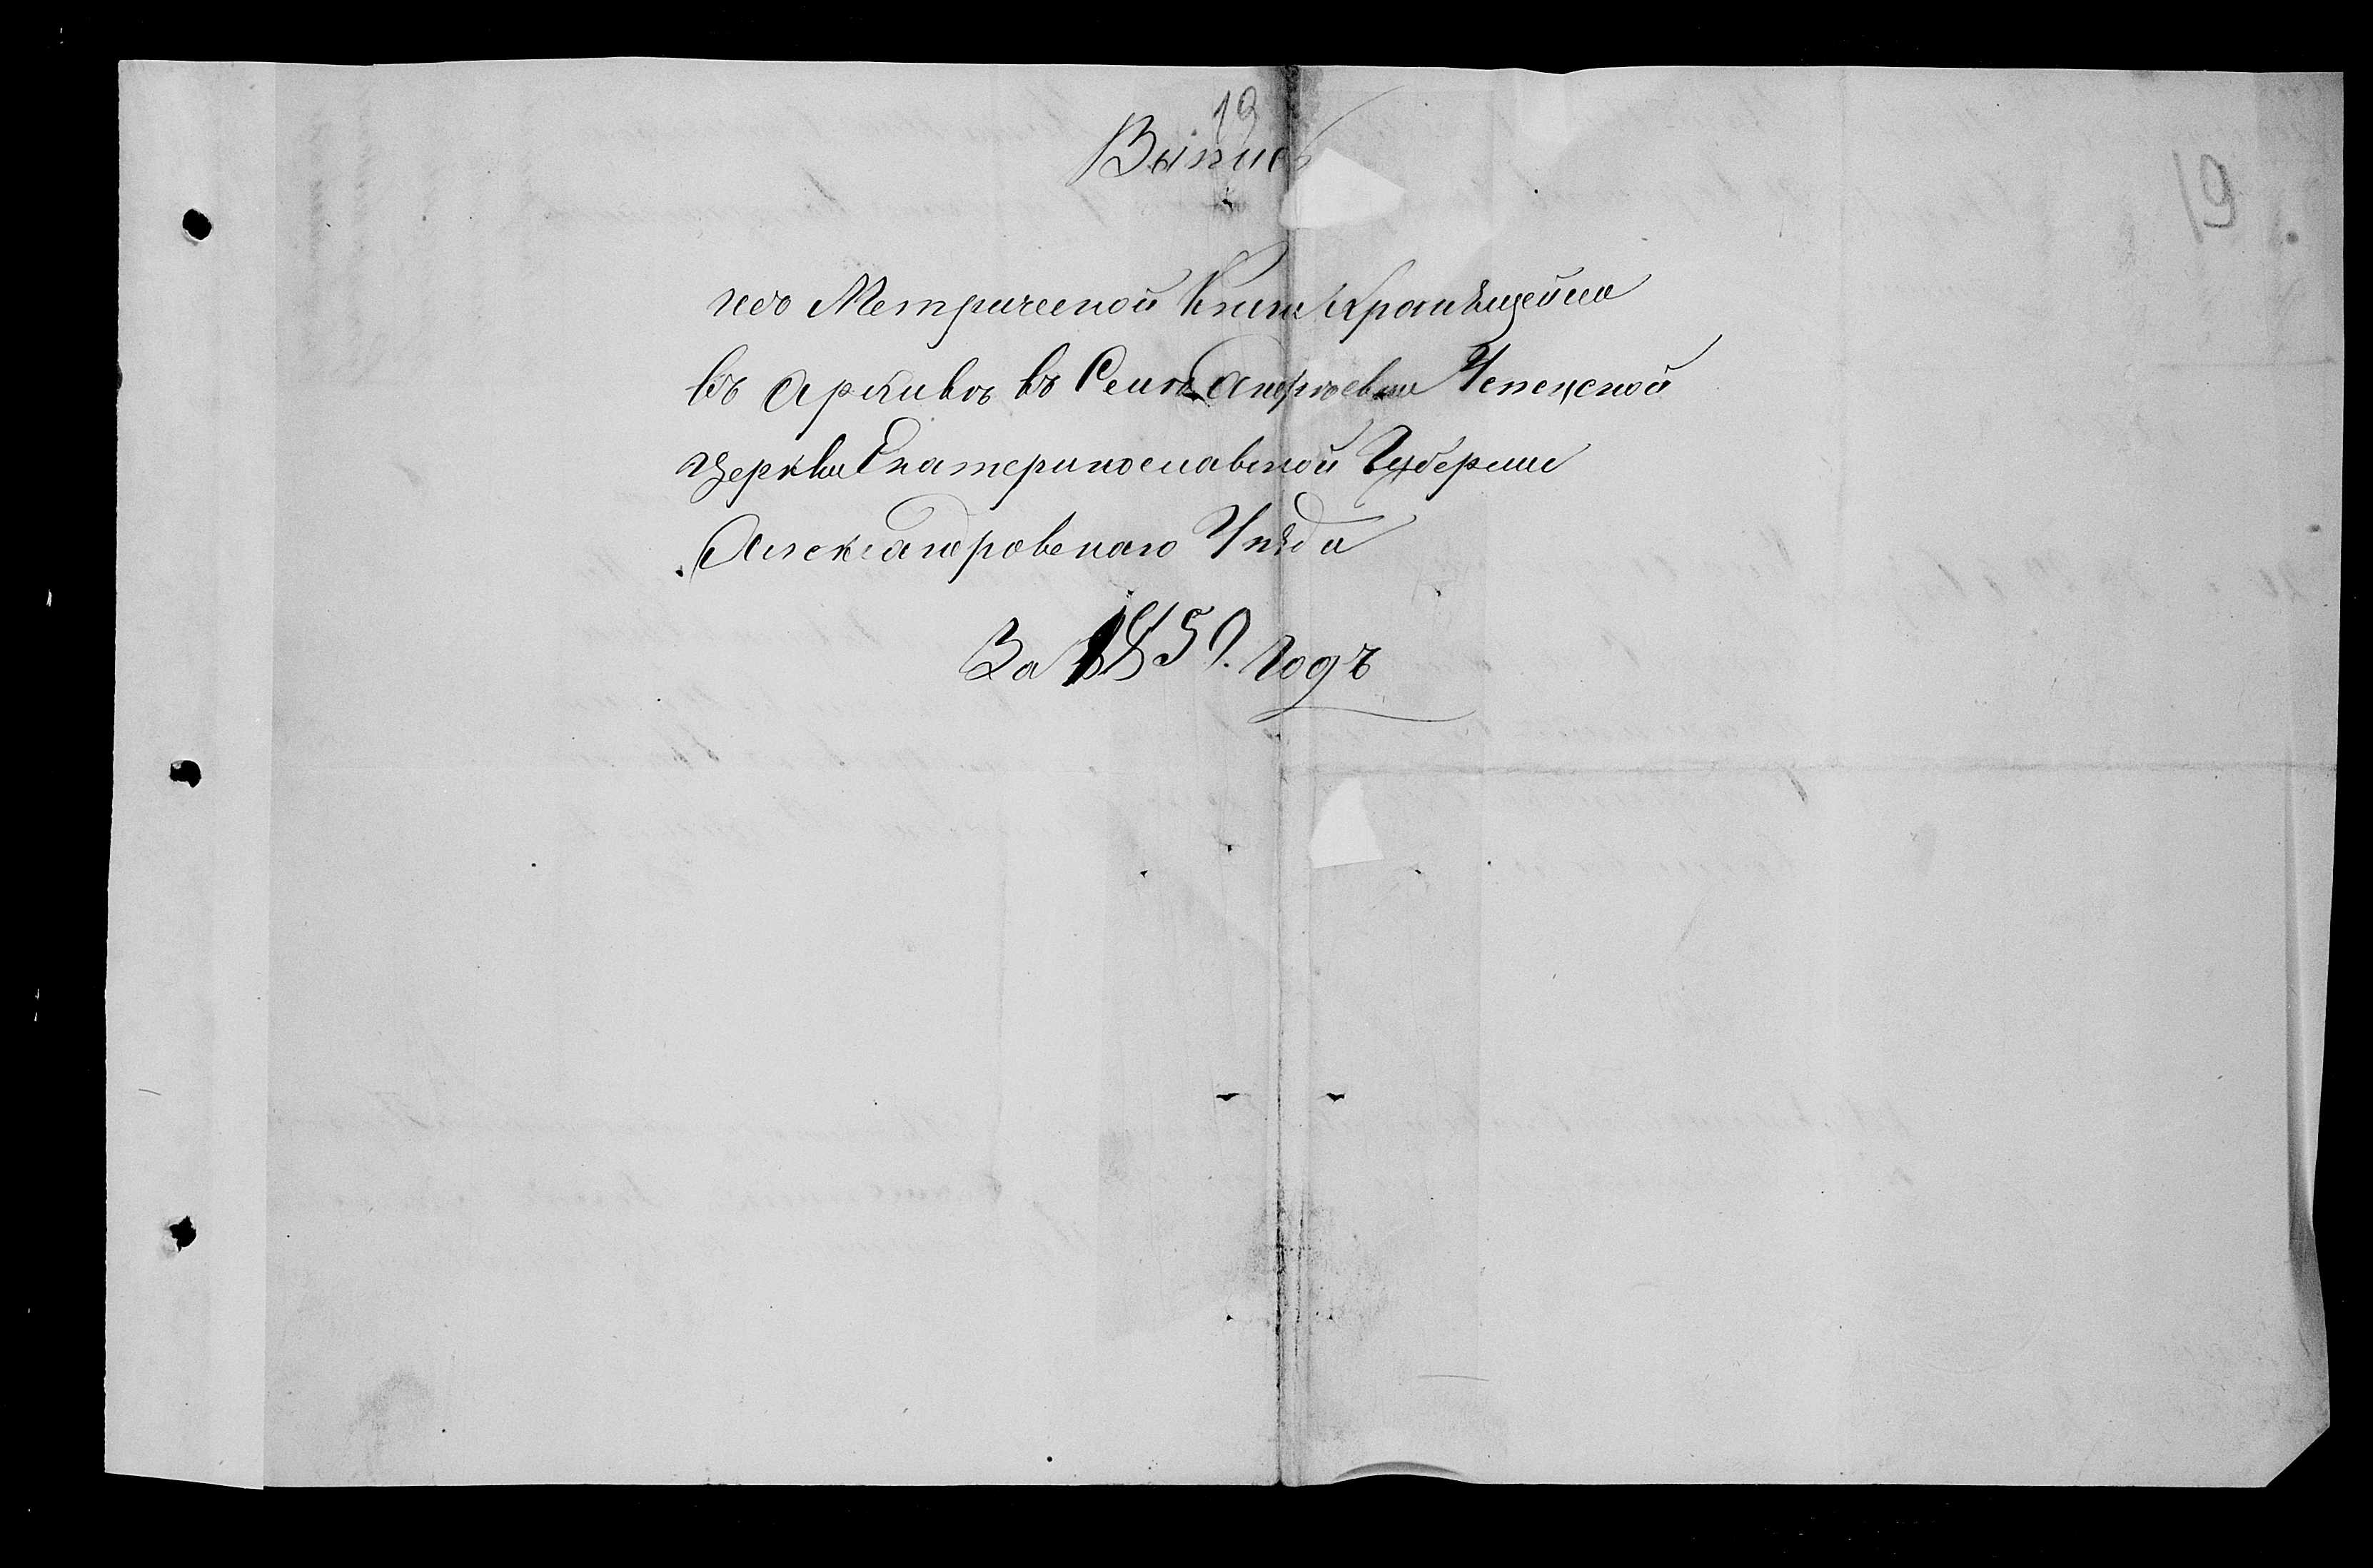 19
Выпись
19
изъ Метрической Книги хранящейся
въ Архивѣ въ Селѣ Андреевки Успенской
Церкви Екатеринославской Губерніи
Александровскаго Уѣзда
За 1859. годъ